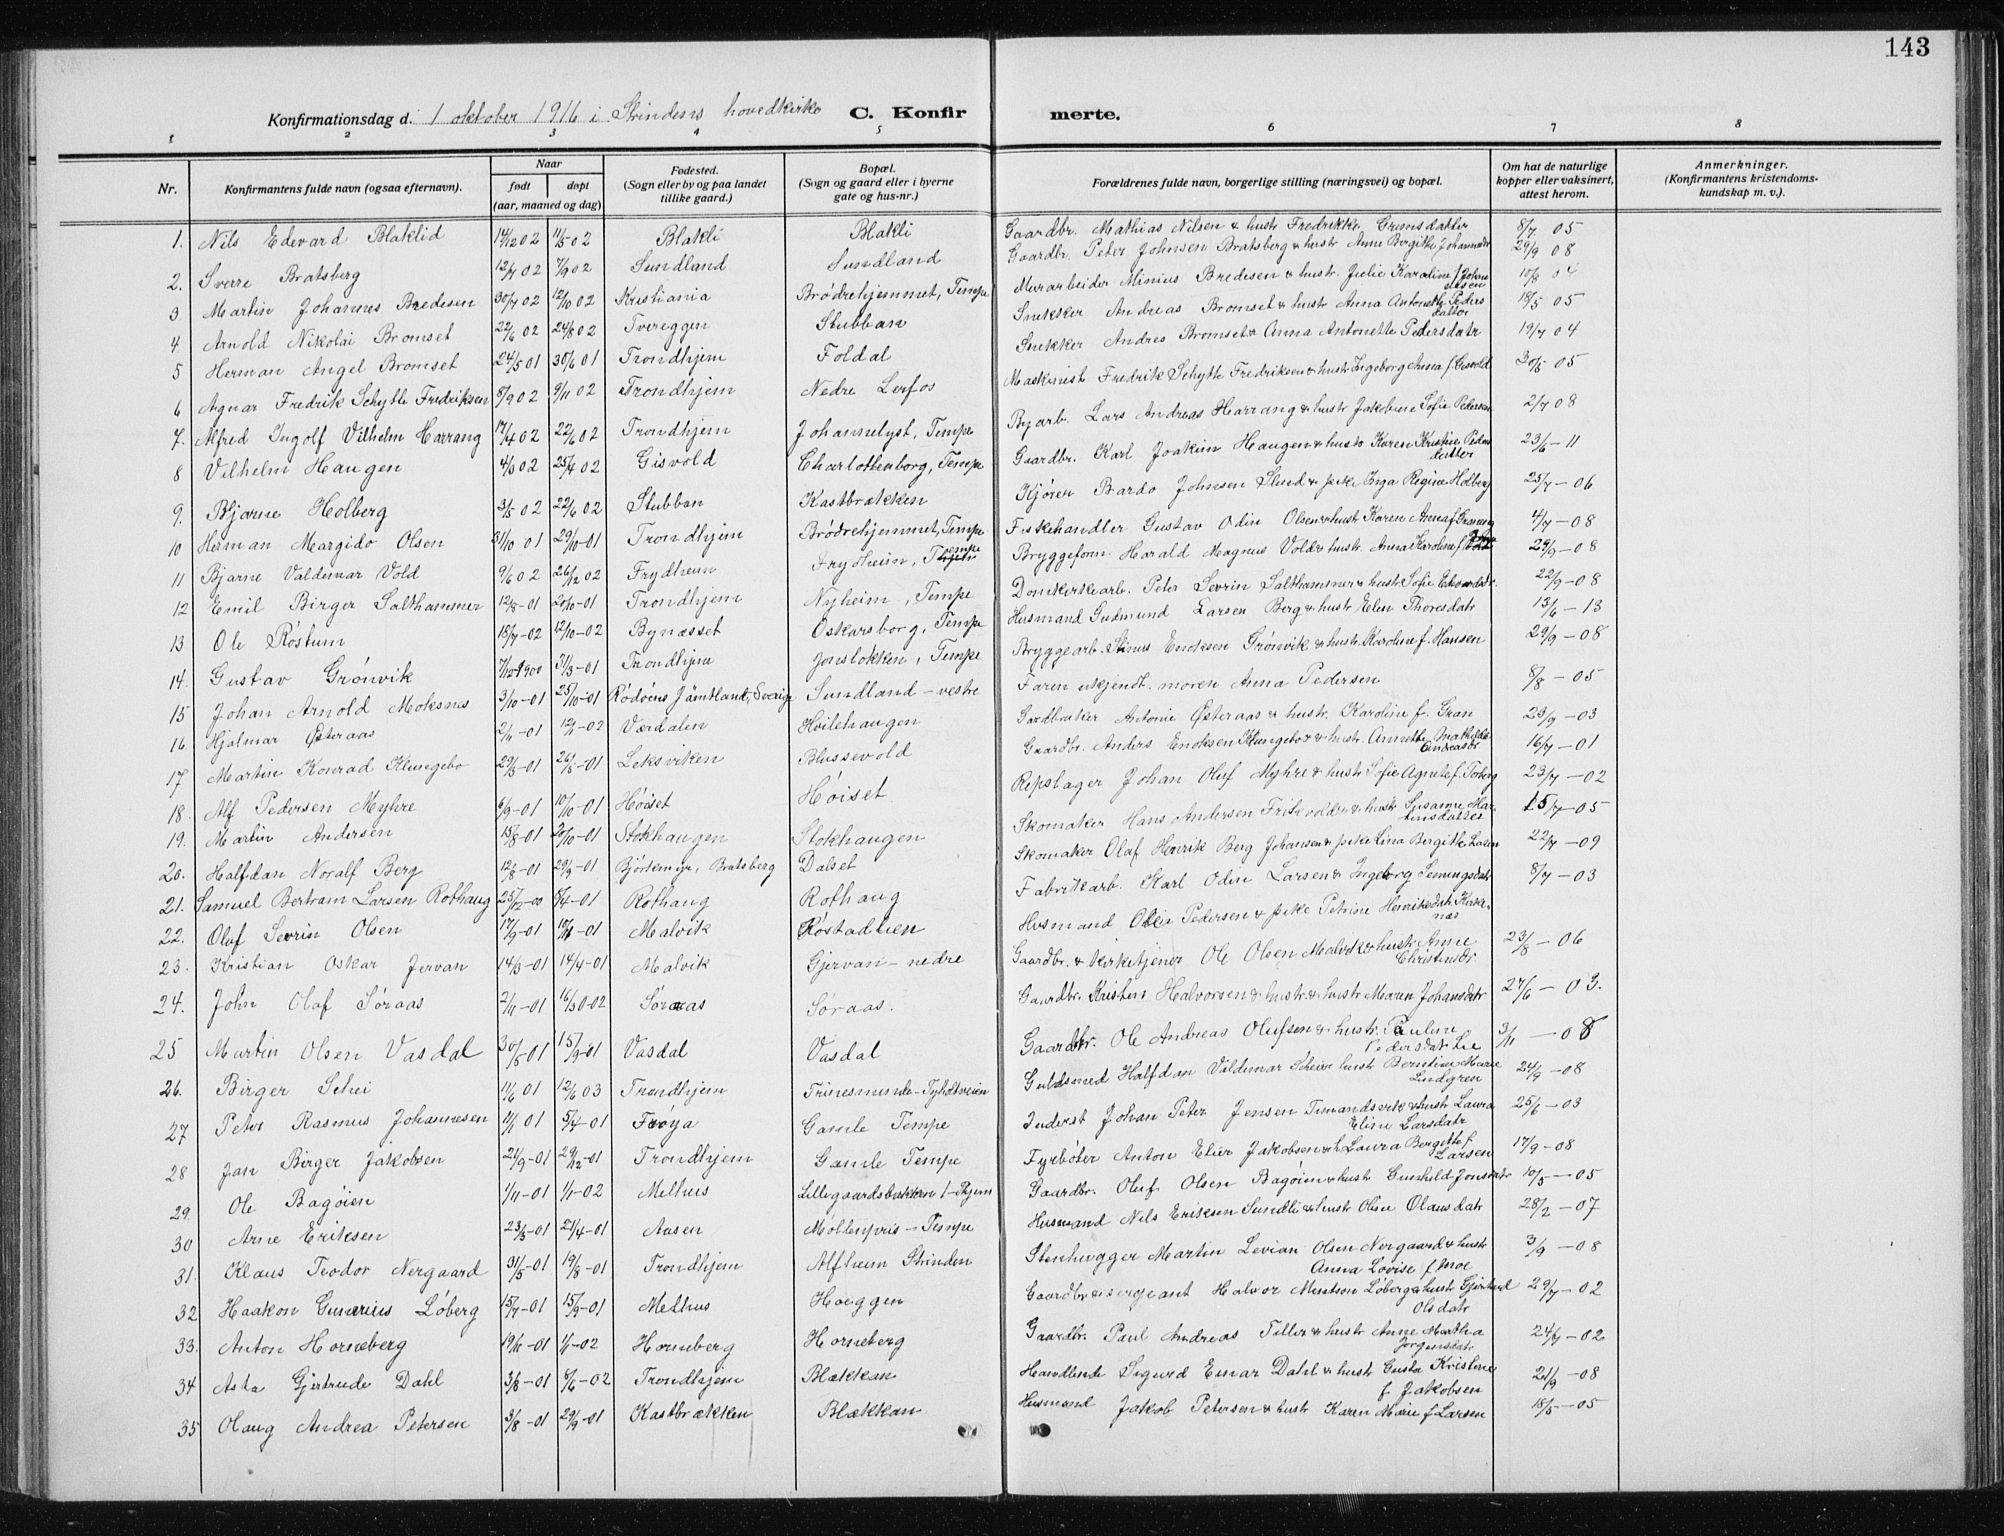 143
Konfirmationsdag d. 1 oktober 1916 i Strindens hovedkirke C. Konfir merte.
1 2 3 4 5 6 7 8
Nr. Konfirmantens fulde navn (ogsaa efternavn). Naar født døpt (aar, maaned og dag) Fødested. (Sogn eller by og paa landet tillike gaard.) Bopæl. (Sogn og gaard eller i byerne gate og hus-nr.) Forældrenes fulde navn, borgerlige stilling (næringsvei) og bopæl. Om hat de naturlige kopper eller vaksinert, attest herom. Anmerkninger. (Konfirmantens kristendomskundskap m. v.)
1. Nils Edevard Blaklid 14/12 02 11/5-02 Blakli Blakli Gaardbr. Mathias Nilsen & hustr Fredrikke Grimsdatter 8/7 05
2. Sverre Bratsberg 12/7 02 7/9 02 Sundland Sundland Gaardbr. Peter Johnsen Bratsberg & hustr Anne Birgithe Johannesdr 29/9 08
3 Martin Johannes Bredesen 30/7 02 12/10 02 Kristiania Brödrehjemmet, Tempe Murarbeider Minius Bredesen & hustr. Julie Karoline f Johansen 10/8 04
4 Arnold Nikolai Bromset 22/6 02 24/8 02 Tvereggen Stubban Snekker Andreas Bromset & hustr Anna Antonette Pedersdatter 18/5 05
5 Herman Angel Bromset 24/5 01 30/6 01 Trondhjem Foldal Snekker Andres Bromset & Anna Antonette Pedersdatr 19/7 04
6 Agnar Fredrik Schytte Fredriksen 8/9 02 9/11 02 Trondhjem Nedre Lerfos Maskinist Fredrik Schytte Fredriksen & hustr Ingeborg Anna f. Gisvold 30/5 05
7. Alfred Ingolf Vilhelm Harrang 17/4 02 22/6 02 Trondhjem Johannelyst, Tempe Byarb. Lars Andreas Harrang & hustr Jakobine Sofie Pedersen 2/7 08
8 Vilhelm Haugen 4/3 02 25/4 02 Gisvold Charlottenborg, Tempe Gaardbr. Karl Joakim Haugen & hustr Karen Kristine Pedersdatter 23/6-11
9. Bjarne Holberg 3/5 02 22/6 02 Stubban Kastbrækken Kjörer Bardo Johnsen Slind & pike Inga Regine Holberg 25/7-06
10 Herman Margido Olsen 31/10 01 29/10-01 Trondhjem Brödrehjemmet, Tempe Fiskehandler Gustav Odin Olsen & hustr Karen Anna f. 4/7-08
11 Bjarne Valdemar Vold 9/6 02 26/12 02 Frydheim Frydheim, Tempe Bryggeform. Harald Magnus Vold & hustr. Anna Karoline f. 29/9-08
12 Emil Birger Salthammer 12/8-01 20/10-01 Trondhjem Nyheim, Tempe Domkirkearb. Peter Sevrin Salthammer & hustr Sofie Edvardsdr. 22/9-08
13 Ole Röstum 18/7-02 12/10-02 Bynæsset Oskarsborg, Tempe Husmand Gudmund Larsen Berg & hustr Elen Thoresdatr 13/6-13
14. Gustav Grönvik 7/12 1900 31/3-01 Trondhjem Jonslökken, Tempe Bryggearb. Enoksen Grönvik & hustr. Karoline f. Hansen 29/9-08
15 Johan Arnold Moksnes 3/10-01 25/10-01 Rödöens Jämtland, Sverige Sundland-vestre Faren ukjendt. moren Anna Pedersen 8/8-05
16. Hjalmar Østeraas 2/11-01 12/1-02 Værdalen Hvilehaugen Gardbruker Antonie Østeraas & hustr. Karoline f. Gran 23/9-03
17 Martin Konrad Klungebo 29/3-01 26/5-01 Leksviken Blussevold Gaardbr. Anders Enoksen Klungebo & hustr. Annette Mathilde Andreasdr 16/7-01
18. Alf Pedersen Myhre 6/9-01 10/10-01 Höiset Höiset Repslager Johan Oluf Myhre & hustr Sofie Agnete f. Torberg 23/7-02
19. Martin Andersen 15/8-01 20/10-01 Stokhaugen Stokhaugen Skomaker Hans Andersen & hustr Susanne Martinsdatter 15/7-05
20. Halfdan Noralf Berg 12/8-01 29/9-01 Björkmyr, Bratsberg Dalset Skomaker Olaf Henrik Berg Johansen & pike Lina Bergitte Larsen 22/7-09
21. Samuel Bertram Larsen Rothaug 25/12-00 8/4-01 Rothaug Rothaug Fabrikarb. Karl Odin Larsen & Ingeborg Lenningsdatr 8/7-03
22. Olaf Sevrin Olsen 17/9-01 10/11-01 Malvik Röstadlien Husmand Pedersen & pike Petrine Henriksdatr Kirkenæs
23. Kristian Oskar Jervan 14/3-01 14/4-01 Malvik Gjervan-nedre Gaardbr. & kirketjener Ole Olsen Malvik & hustr. Anne Christensdr 23/8-06
24. John Olaf Söraas 2/11-01 16/3 02 Söraas Söraas. Gaardbr. Kristen Halvorsen & hustr & hustr Maren Johansdatr 27/6-03.
25 Martin Olsen Vasdal 30/5-01 15/9-01 Vasdal Vasdal Gaardbr. Ole Andreas Olufsen & hustr. Pauline Pedersdatr Lie 3/11-08
26. Birger Schei 11/6 01 12/6 03 Trondhjem Trinesminde-Tyholtveien Guldsmed Halfdan Valdemar Schei & hustr Berntine Marie Lindgren 24/9-08
27 Peter Rasmus Johannesen 11/1 01 5/4-01 Fröya Gamle Tempe Inderst Johan Peter Jensen & hustr Laura Eline Larsdatr 25/6-03
28 Jan Birger Jakobsen 21/9-01 29/12-01 Trondhjem Gamle Tempe Fyrböter Anton Elier Jakobsen & h. Laura Bergitte f. Larsen 17/9-08
29. Ole Bagöien 1/11-01 1/1-02 Melhus Lillegaardsbakken 1-Thjem Gaardbr. Oluf Olsen Bagöien & hustr Gunhild Jonsdatr 10/5-05
30 Arne Eriksen 23/3-01 21/4-01 Aasen Möllenpris-Tempe Husmand Nils Eriksen Sundli & hustr Oline Olausdatr 28/2-07
31. Klaus Teodor Nergaard 31/5-01 19/8-01 Trondhjem Alfheim Strinden Stenhugger Martin Levian Olsen Nergaard & hustr Anna Lovise f. Moe 3/9-08
32 Haakon Gunerius Löberg 15/7-01 15/9-01 Melhus Hoeggen Gaardbr & sergeant Halvor Löberg & hustr Gjertrud Olsdatr 29/7-02
33. Anton Horneberg 19/11-01 1/1-02 Horneberg Horneberg Gaardbr. Paul Andreas Tiller & hustr Anne Martha Jorgensdatr 24/7-02
34 Asta Gjertrude Dahl 3/8-01 6/6-02 Trondhjem Blækkan Handlende Sigurd Einar Dahl & hustr Gusta Kristine f Jakobsen 21/9-08
35 Olaug Andrea Petersen 3/8-01 29/9-01 Kastbrækken Blækkan Husmand Jakob Petersen & hustr Karen Marie f Larsen 18/5-05